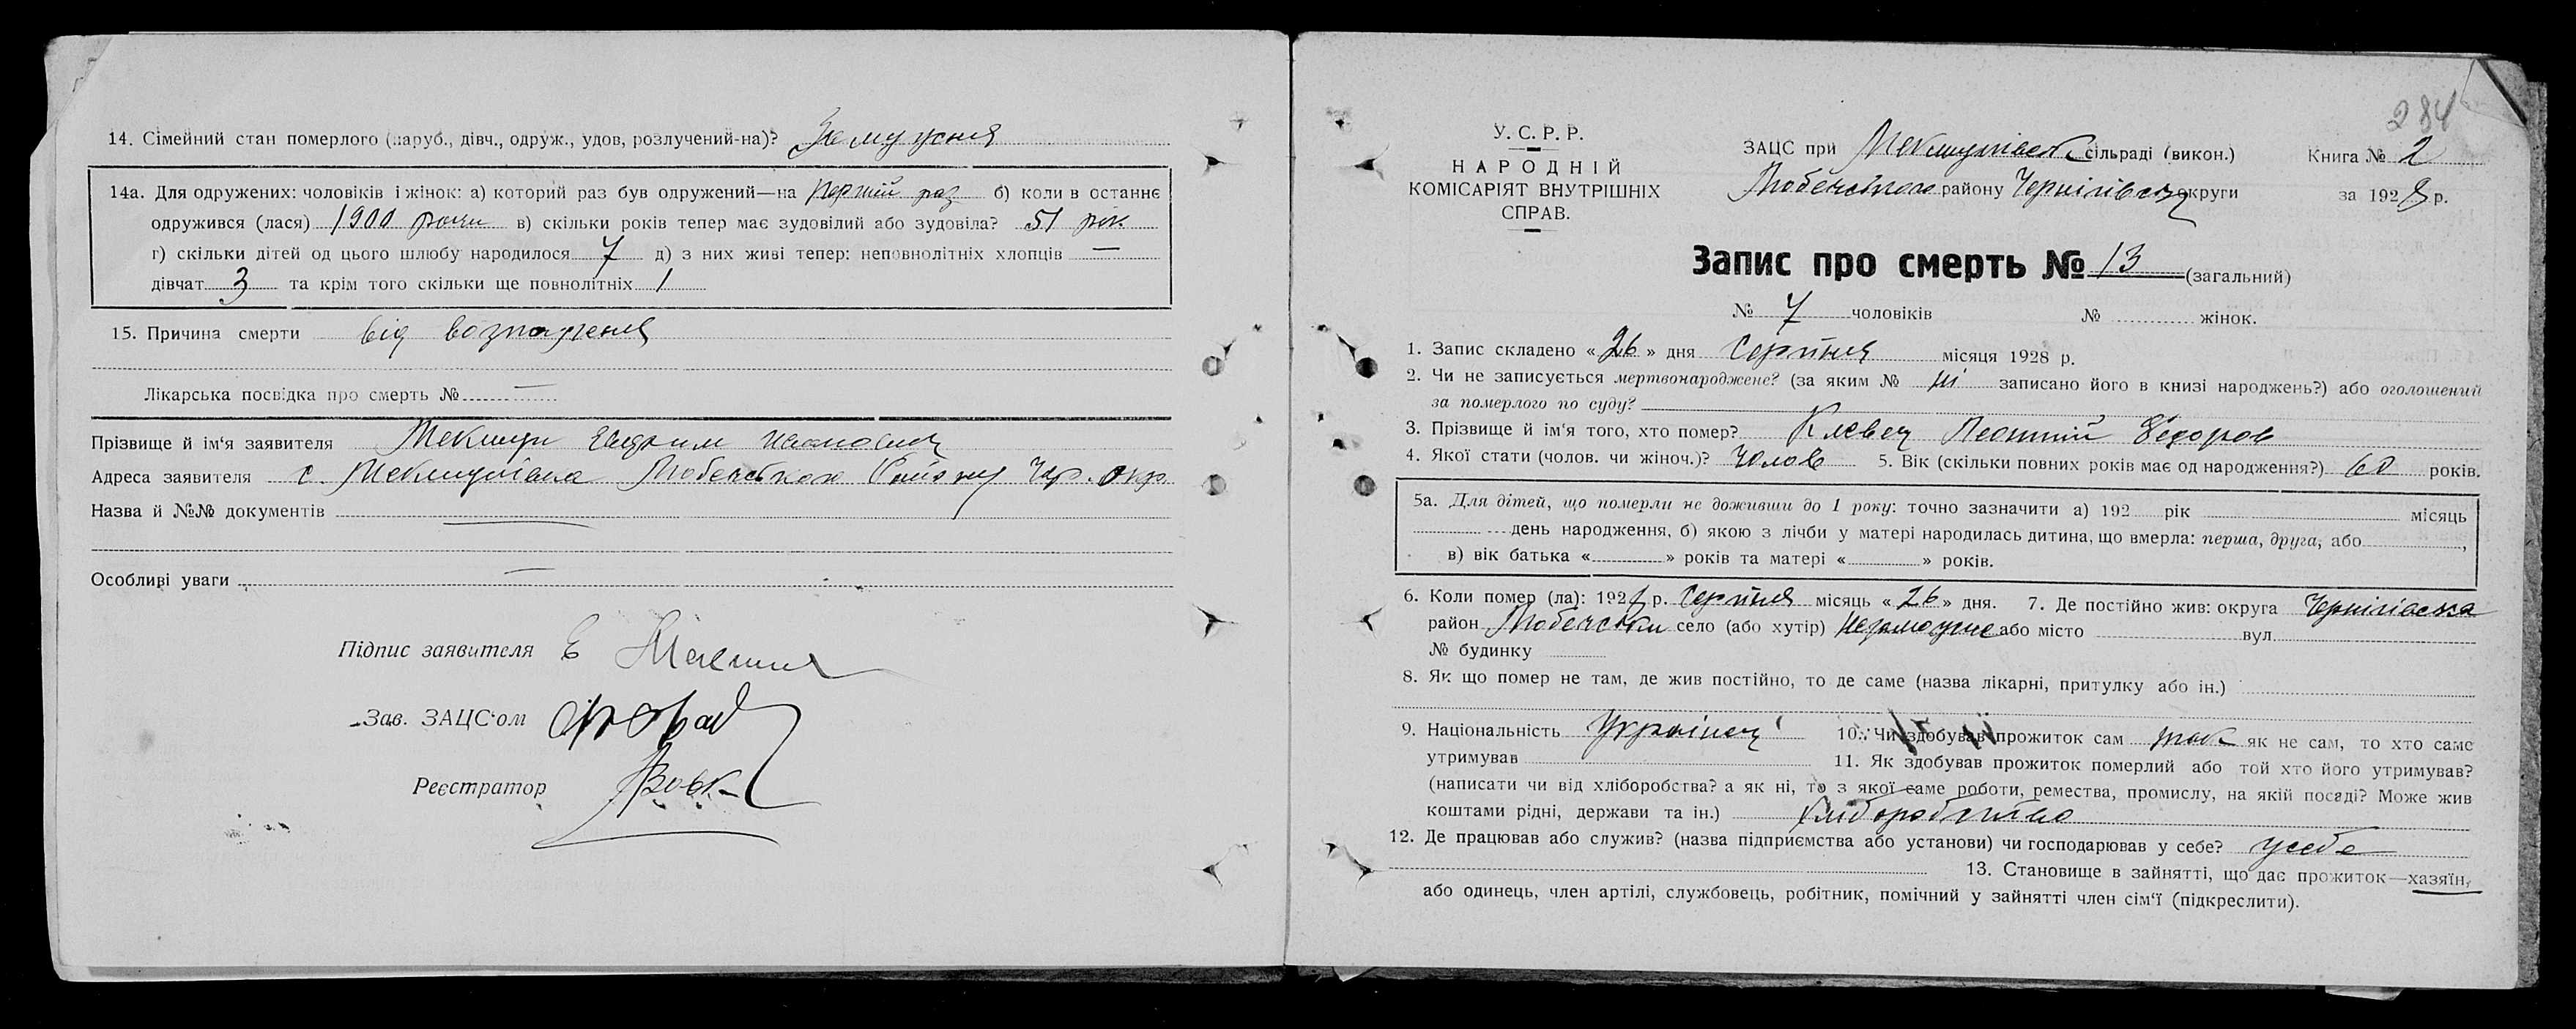 14. Сімейний стан померлого (паруб., дівч., одруж., удов, розлучений-на)? Замужня
14а. Для одружених: чоловіків і жінок: а) которий раз був одружений—на первий раз б) коли в останнє
одружився (лася) 1900 роки в) скільки років тепер має зудовілий або зудовіла? 51 рік
г) скільки дітей од цього шлюбу народилося 7 д) з них живі тепер: неповнолітніх хлопців —
дівчат 3 та крім того скільки ще повнолітніх 1
15. Причина смерти від
Лікарська посвідка про смерть № —
Прізвище й ім'я заявителя
Адреса заявителя с. Любечського Району Чер. окр.
Назва й №№ документів —
Особливі уваги —
Підпис заявителя Е
Зав. ЗАЦС'ом
Реєстратор Вовк
284
У. С. Р. Р.
НАРОДНІЙ
КОМІСАРІЯТ ВНУТРІШНІХ
СПРАВ.
ЗАЦС при сільраді (викон.)
Любечського району Чернігівськ округи
Книга № 2
за 1928 р.
Запис про смерть № 13 (загальний)
№ 7 чоловіків № жінок.
1. Запис складено « 26 » дня Серпня місяця 1928 р.
2. Чи не записується мертвонароджене? (за яким № ні записано його в книзі народжень?) або оголошений
за померлого по суду?
3. Прізвище й ім'я того, хто помер? Клевец Леонтий Федоров
4. Якої стати (чолов. чи жіноч.)? Чолов 5. Вік (скільки повних років має од народження?) 60 років.
5а. Для дітей, що померли не доживши до 1 року: точно зазначити а) 192 рік місяць
день народження, б) якою з лічби у матері народилась дитина, що вмерла: перша, друга, або ,
в) вік батька « » років та матері « » років.
6. Коли помер (ла): 1928 р. Серпня місяць « 26 » дня. 7. Де постійно жив: округа Чернігівська
район Любечськи село (або хутір) Незаможне або місто вул.
№ будинку
8. Як що помер не там, де жив постійно, то де саме (назва лікарні, притулку або ін.)
9. Національність Українец 10. Чи здобував прожиток сам так як не сам, то хто саме
утримував 11. Як здобував прожиток померлий або той хто його утримував?
(написати чи від хліборобства? а як ні, то з якої саме роботи, ремества, промислу, на якій посаді? Може жив
коштами рідні, держави та ін.) хліборобство
12. Де працював або служив? (назва підприємства або установи) чи господарював у себе? у себе
13. Становище в зайнятті, що дає прожиток—хазяїн,
або одинець, член артілі, службовець, робітник, помічний у зайнятті член сім'ї (підкреслити).